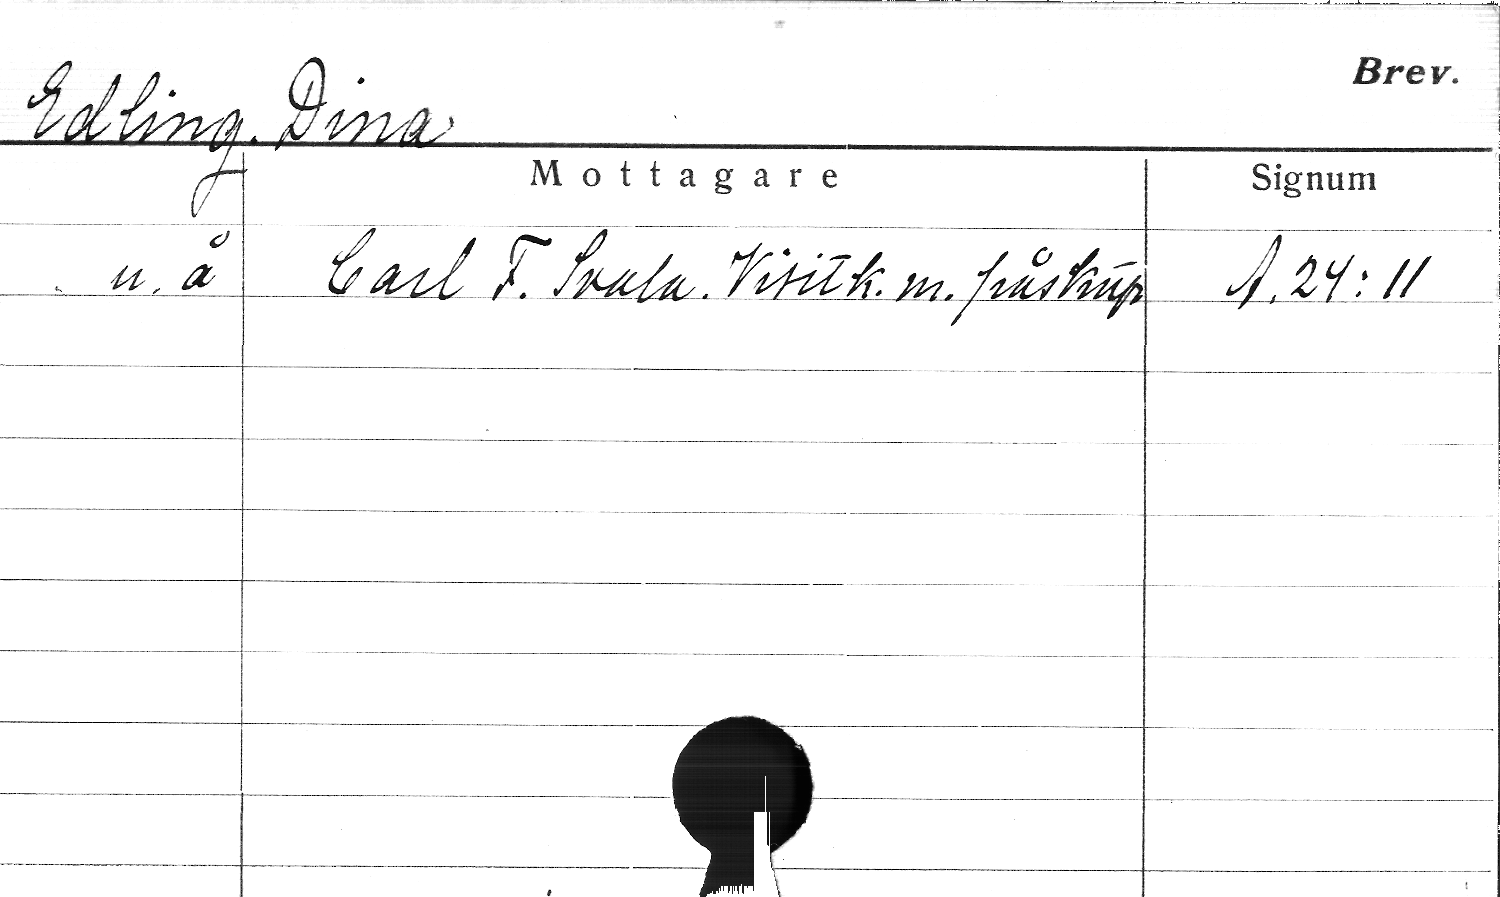 Brev.
Edling, Dina
Mottagare
Signum
u. å Carl F. Svala. Visitk. m. påskr. A. 24:11